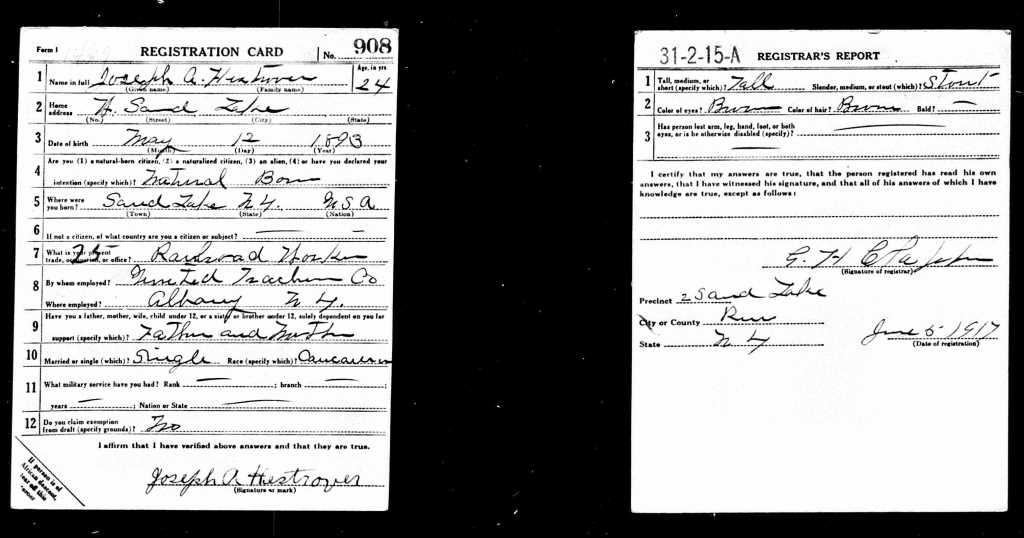 Form 1 REGISTRATION CARD No. 908
1 Name in full Joseph A. Hestrover Age, in yrs. 24
(Given name) (Family name)
2 Home address W. Sand Lake
(No.) (Street) (City) (State)
3 Date of birth May 12 1893
(Month) (Day) (Year)
4 Are you (1) a natural-born citizen, (2) a naturalized citizen, (3) an alien, (4) or have you declared your
intention (specify which)? Natural Born
5 Where were you born? Sand Lake N.Y. U S A
(Town) (State) (Nation)
6 If not a citizen, of what country are you a citizen or subject? — —
7 What is your present trade, occupation, or office? 25 Railroad Worker
8 By whom employed? United Traction Co
Where employed? Albany N.Y.
9 Have you a father, mother, wife, child under 12, or a sister or brother under 12, solely dependent on you for
support (specify which)? Father and Mother
10 Married or single (which)? Single Race (specify which)? Caucasian
11 What military service have you had? Rank — ; branch — ;
years — ; Nation or State —
12 Do you claim exemption from draft (specify grounds)? No
I affirm that I have verified above answers and that they are true.
Joseph A Hestrover
(Signature or mark)
If person is of
African descent,
corner
31-2-15-A REGISTRAR'S REPORT
1 Tall, medium, or short (specify which)? Tall Slender, medium, or stout (which)? Stout
2 Color of eyes? Brown Color of hair? Brown Bald? —
3 Has person lost arm, leg, hand, foot, or both
eyes, or is he otherwise disabled (specify)? —
I certify that my answers are true, that the person registered has read his own
answers, that I have witnessed his signature, and that all of his answers of which I have
knowledge are true, except as follows:
G. H.
(Signature of registrar)
Precinct 2 Sand Lake
City or County Ren
State N Y
June 5 1917
(Date of registration)